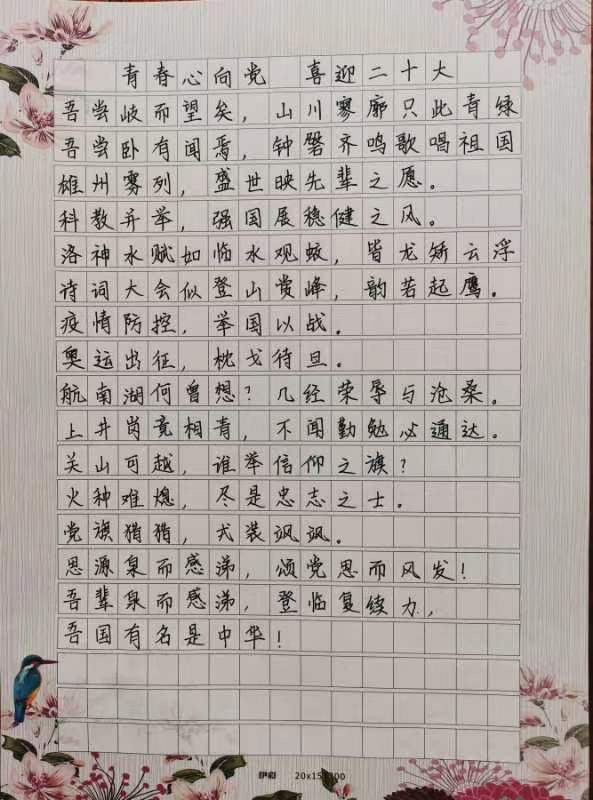 青春心向党 喜迎二十大
吾尝岐而望矣，山川寥廓只此青绿
吾尝卧有闻焉，钟磬齐鸣歌唱祖国
雄州雾列，盛世映先辈之愿。
科教并举，强国展稳健之风。
洛神水赋如临水观蛟，皆龙矫云浮
诗词大会似登山赏峰，韵若起鹰。
疫情防控，举国以战。
奥运出征，枕戈待旦。
航南湖何曾想？几经荣辱与沧桑。
上井岗竟相青，不闻勤勉必通达。
关山可越，谁举信仰之旗？
火种难熄，尽是忠志之士。
党旗猎猎，戎装飒飒。
思源泉而感涕，颂党恩而风发！
吾辈泉而感涕，登临复续力，
吾国有名是中华！
20x15=300